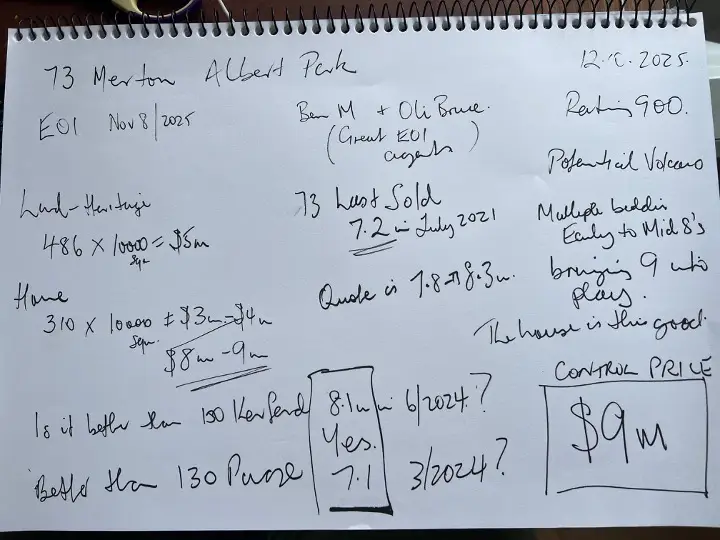 73 Merton Albert Park
12.10.2025.
EOI Nov 8/2025
Ben M + Oli Bruce.
(Great EOI
agents)
Rating 900.
Potential Volcano
Land-Heritage
486 x 10000 = $5m
sqm
73 Last Sold
7.2 in July 2021
Multiple bidders
Early to Mid 8's
bringing 9 into
play.
Quote is 7.8-8.3m.
The house is this good.
Home
310 x 10000 = $3m-$4m
sqm.
$8m-9m
Is it better than 150 Kerferd 8.1m in 6/2024?
Yes.
Better than 130 Page 7.1 3/2024?
CONTROL PRICE
$9m